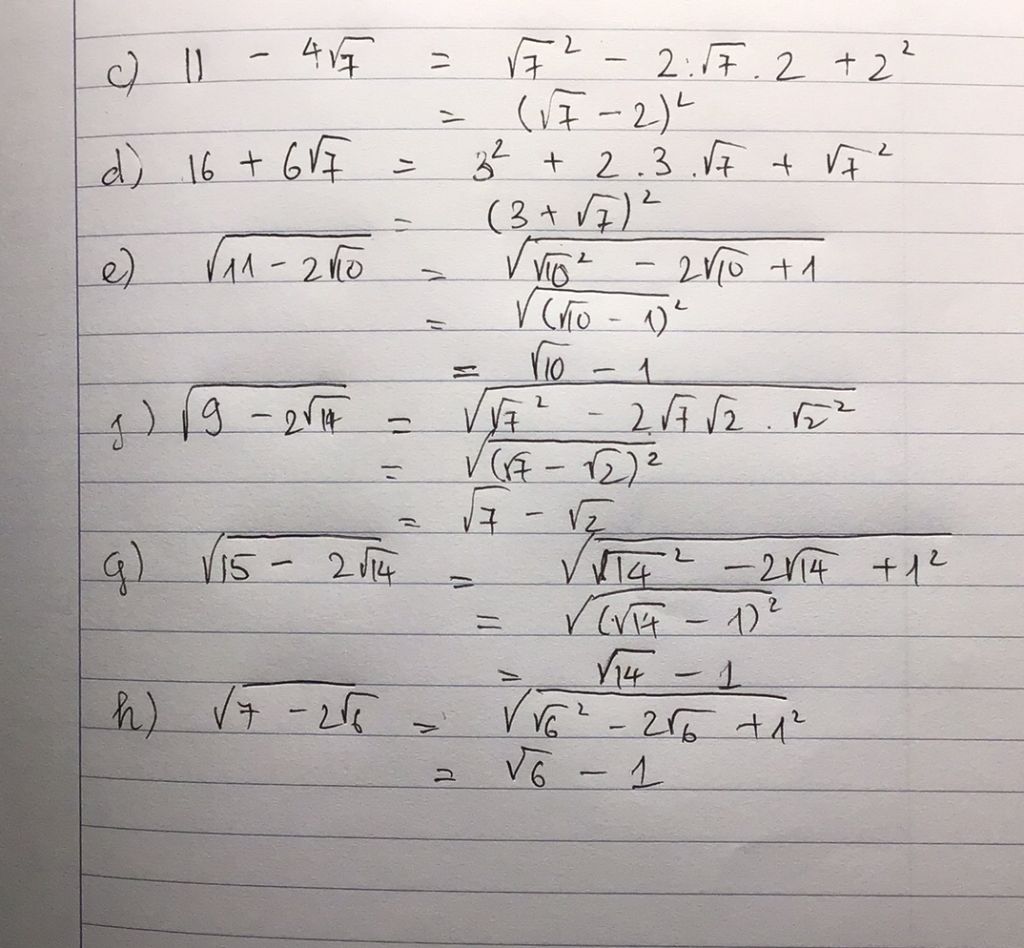 c) 11 - 4√7 = √7² - 2.√7.2 + 2²
= (√7 - 2)²
d) 16 + 6√7 = 3² + 2.3.√7 + √7²
= (3 + √7)²
e) √(11 - 2√10) = √(√10² - 2√10 + 1)
= √(√10 - 1)²
= √10 - 1
f) √(9 - 2√14) = √(√7² - 2.√7√2 . √2²)
= √(√7 - √2)²
= √7 - √2
g) √(15 - 2√14) = √(√14² - 2√14 + 1²)
= √(√14 - 1)²
= √14 - 1
h) √(7 - 2√6) = √(√6² - 2√6 + 1²)
= √6 - 1